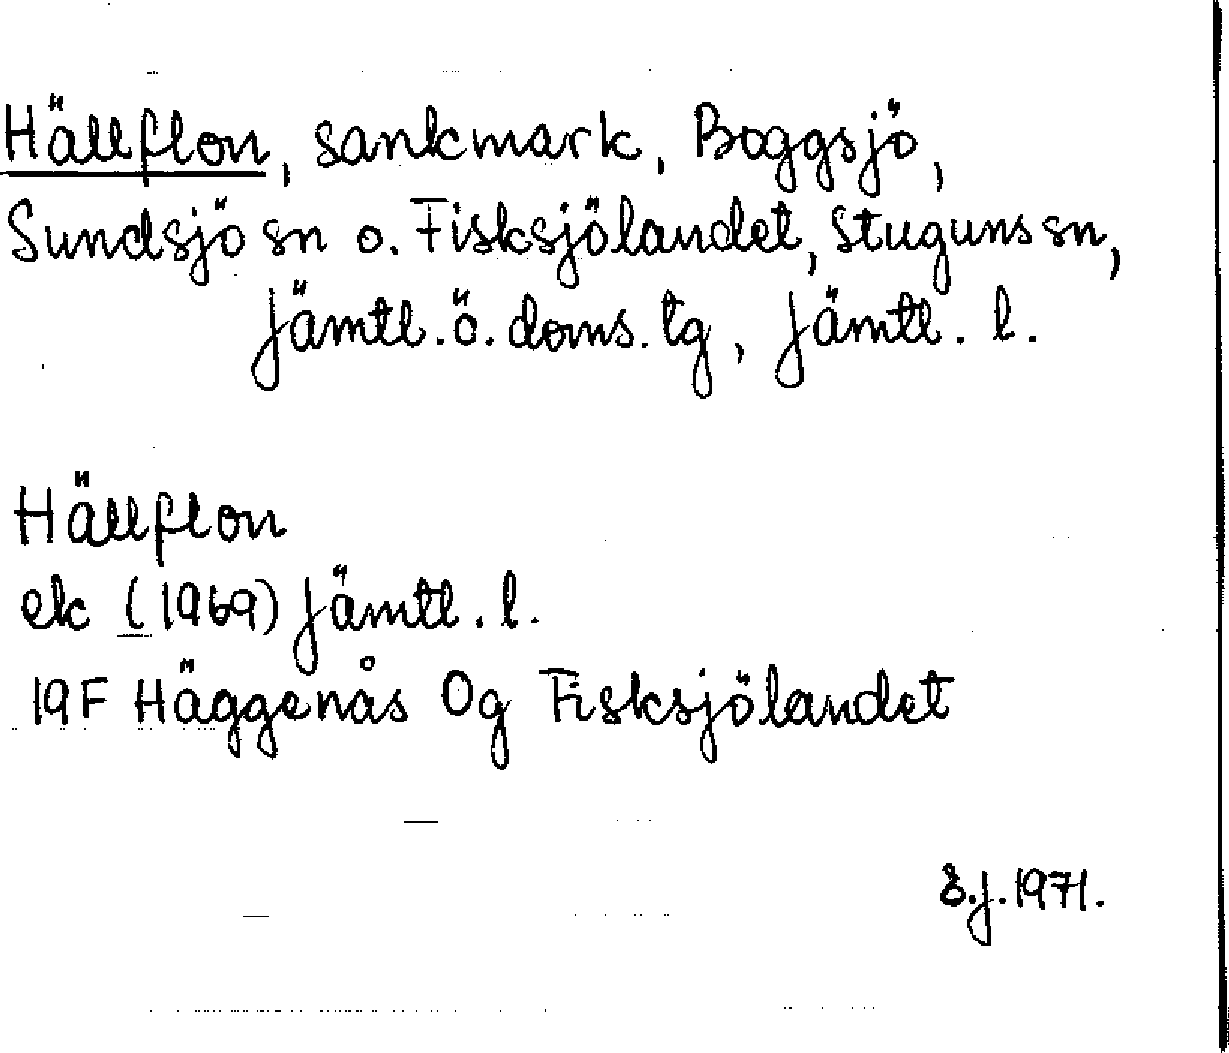 Hällflon, sankmark, Boggsjö,
Sundsjö sn o. Fisksjölandet, Stuguns sn,
Jämtl. ö. doms. tg, Jämtl. l.
Hällflon
ek (1969) Jämtl. l.
19F Häggenås 0g Fisksjölandet
S.J. 1971.